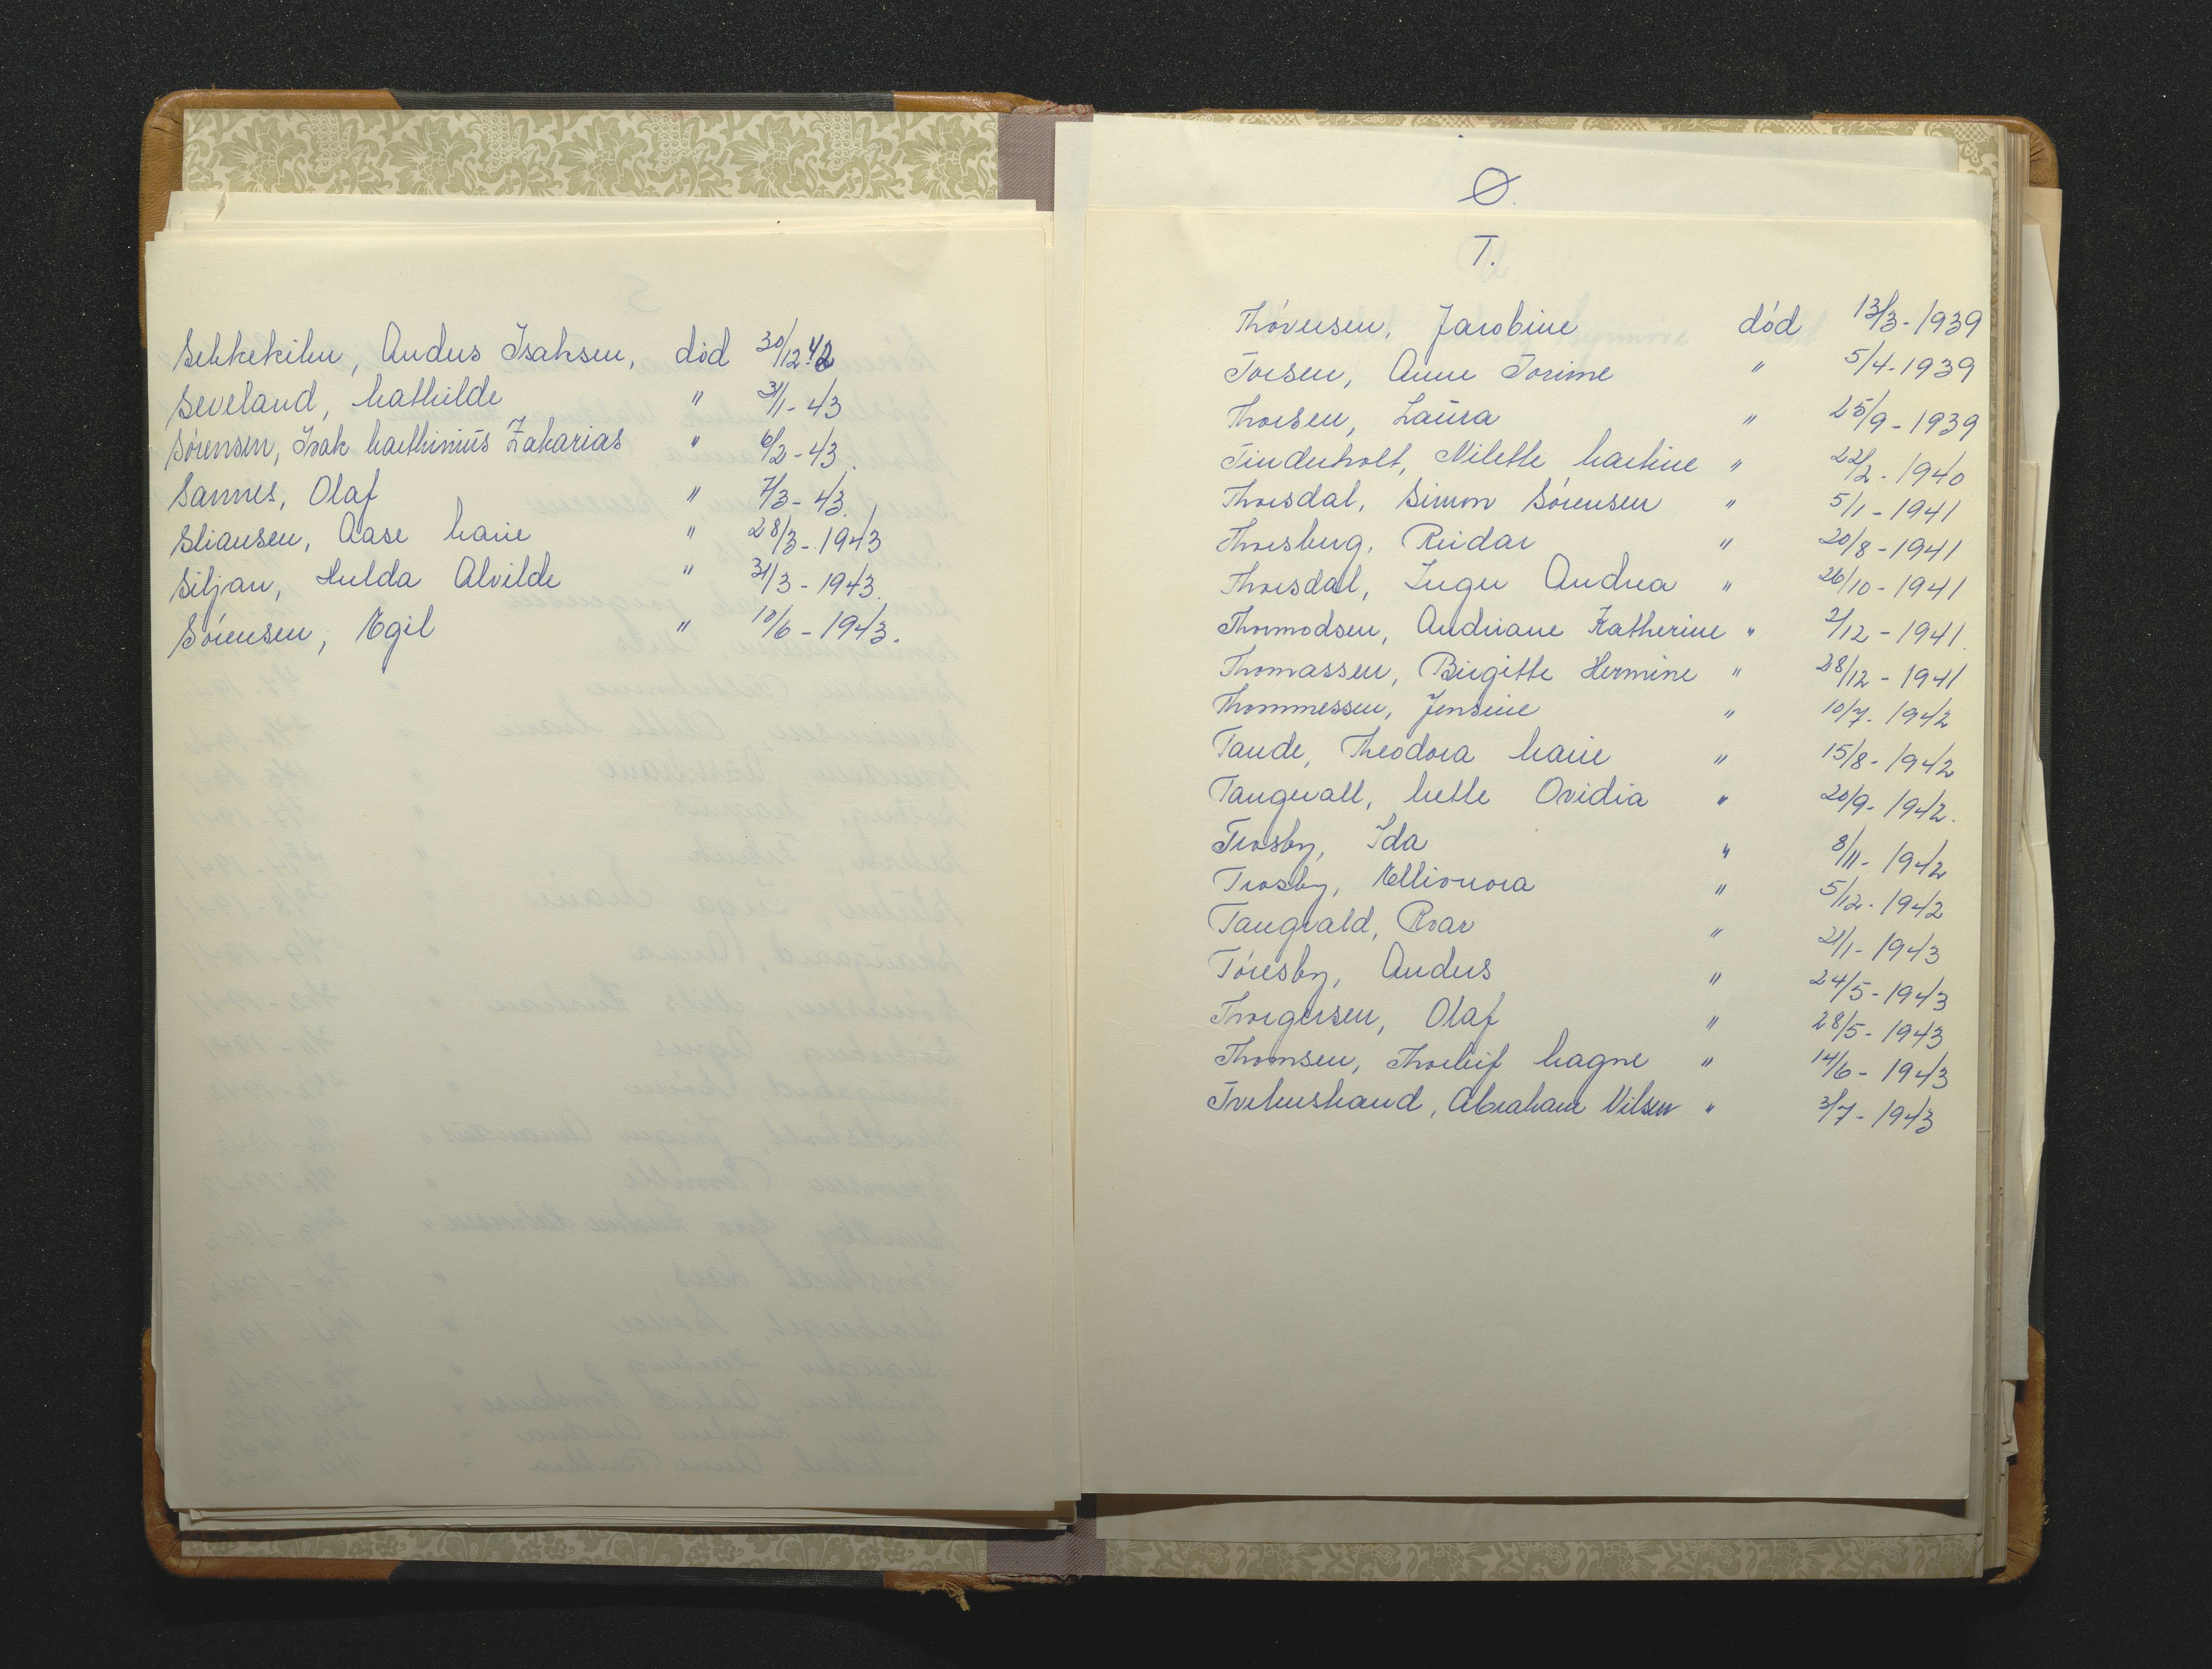 Selskekilen, Anders Isaksen, død 30/12 42
Seveland, Mathilde " 31/1 - 43
Sørensen, Isak Marthinius Zakarias " 6/2 - 43.
Sannes, Olaf " 7/3 - 43.
Sliansen, Aase Marie " 28/3 - 1943
Siljan, Hulda Alvilde " 31/3 - 1943.
Sørensen, Egil " 10/6 - 1943.
Ø.
T.
Thóresen, Jacobine død 13/3 - 1939
Torsen, Anne Torine " 5/4 - 1939
Thorsen, Laura " 25/9 - 1939
Tinderholt, Nilette Martine " 22/2 - 1940
Thorsdal, Simon Sørensen " 5/1 - 1941
Thorsberg, Reidar " 20/8 - 1941
Thorsdal, Inger Andrea " 26/10 - 1941
Thormodsen, Andriane Katherine " 2/12 - 1941.
Thomassen, Birgitte Hermine " 28/12 - 1941
Thommessen, Jensine " 10/7 - 1942
Tande, Theodora Marie " 15/8 - 1942
Tangevall, Mette Ovidia " 20/9 - 1942.
Trosby, Ida " 8/11 - 1942
Trosby, Ellionora " 5/12 - 1942
Tangvald, Roar " 21/1 - 1943
Tóresby, Anders " 24/5 - 1943
Thorgersen, Olaf " 28/5 - 1943
Thomsen, Thorleif Magne " 14/6 - 1943
Abraham Nilsen " 3/7 - 1943